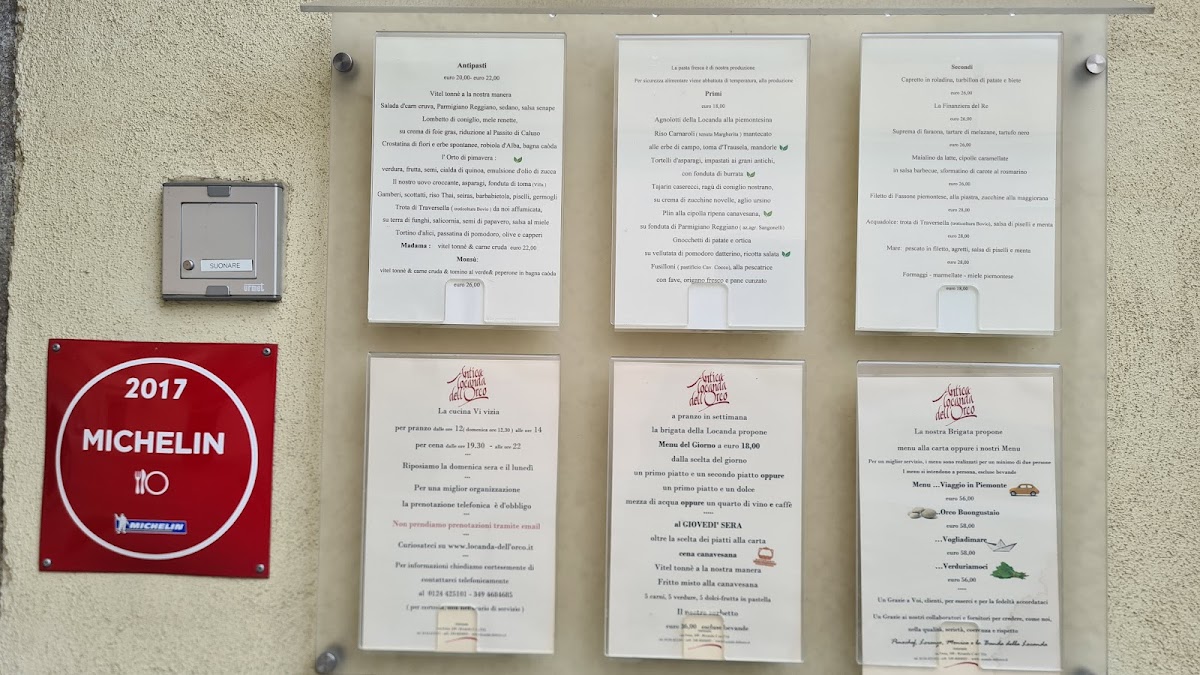 Antipasti
euro 20,00- euro 22,00
Vitel tonnè a la nostra manera
Salada d'carn cruva, Parmigiano Reggiano, sedano, salsa senape
Lombetto di coniglio, mele renette,
su crema di foie gras, riduzione al Passito di Caluso
Crostatina di fiori e erbe spontanee, robiola d'Alba, bagna caòda
l' Orto di pimavera :
verdura, frutta, semi, cialda di quinoa, emulsione d'olio di zucca
Il nostro uovo croccante, asparagi, fonduta di toma
Gamberi, scottati, riso Thai, seiras, barbabietola, piselli, germogli
Trota di Traversella ( da noi affumicata,
su terra di funghi, salicornia, semi di papavero, salsa al miele
Tortino d'alici, passatina di pomodoro, olive e capperi
Madama : vitel tonnè & carne cruda euro 22,00
Monsù:
vitel tonnè & carne cruda & tomino al verde& peperone in bagna caòda
euro 26,00
La pasta fresca è di nostra produzione
Per sicurezza alimentare viene abbattuta di temperatura, alla produzione
Primi
euro 18,00
Agnolotti della Locanda alla piemontesina
Riso Carnaroli ( tenuta Margherita ) mantecato
alle erbe di campo, toma d'Trausela, mandorle
Tortelli d'asparagi, impastati ai grani antichi,
con fonduta di burrata
Tajarin caserecci, ragù di coniglio nostrano,
su crema di zucchine novelle, aglio ursino
Plin alla cipolla ripena canavesana,
su fonduta di Parmigiano Reggiano ( az.agr. Sanguanelli)
Gnocchetti di patate e ortica
su vellutata di pomodoro datterino, ricotta salata
Fusilloni ( pastificio Cav. Cocco), alla pescatrice
con fave, origano fresco e pane cunzato
Secondi
Capretto in roladina, turbillon di patate e biete
euro 26,00
La Finanziera del Re
euro 26,00
Suprema di faraona, tartare di melanzane, tartufo nero
euro 26,00
Maialino da latte, cipolle caramellate
in salsa barbecue, sformatino di carote al rosmarino
euro 26,00
Filetto di Fassone piemontese, alla piastra, zucchine alla maggiorana
euro 28,00
Acquadolce: trota di Traversella salsa di piselli e menta
euro 28,00
Mare: pescato in filetto, agretti, salsa di piselli e menta
euro 28,00
Formaggi - marmellate - miele piemontese
euro 18,00
SUONARE
urmet
2017
MICHELIN
MICHELIN
Antica
Locanda
dell'Orco
La cucina Vi vizia
per pranzo dalle ore 12( domenica ore 12,30 ) alle ore 14
per cena dalle ore 19.30 - alle ore 22
---
Riposiamo la domenica sera e il lunedì
---
Per una miglior organizzazione
la prenotazione telefonica è d'obbligo
---
Non prendiamo prenotazioni tramite email
---
Curiosateci su www.locanda-dell'orco.it
---
Per informazioni chiediamo cortesemente di
contattarci telefonicamente
al 0124 425101 - 349 4604685
( per cortesia, non ore orario di servizio )
Antica
Locanda
dell'Orco
a pranzo in settimana
la brigata della Locanda propone
Menu del Giorno a euro 18,00
dalla scelta del giorno
un primo piatto e un secondo piatto oppure
un primo piatto e un dolce
mezza di acqua oppure un quarto di vino e caffè
-----
al GIOVEDI' SERA
oltre la scelta dei piatti alla carta
cena canavesana
Vitel tonnè a la nostra manera
Fritto misto alla canavesana
5 carni, 5 verdure, 5 dolci-frutta in pastella
Il nostro sorbetto
euro 36,00 escluse bevande
Antica
Locanda
dell'Orco
La nostra Brigata propone
menu alla carta oppure i nostri Menu
Per un miglior servizio, i menu sono realizzati per un minimo di due persone
I menu si intendono a persona, escluse bevande
Menu ...Viaggio in Piemonte
euro 56,00
...Orco Buongustaio
euro 58,00
...Vogliadimare
euro 58,00
...Verduriamoci
euro 56,00
-----
Un Grazie a Voi, clienti, per esserci e per la fedeltà accordataci
Un Grazie ai nostri collaboratori e fornitori per credere, come noi,
nella qualità, serietà, costanza e rispetto
Pinuchef, Lorenzo, Monica e la Banda della Locanda